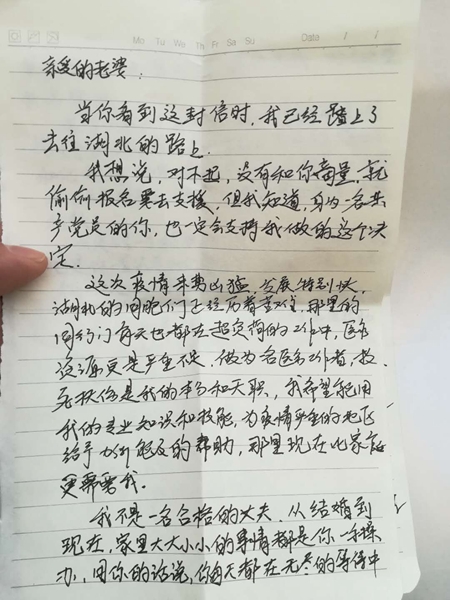 Mo Tu We Th Fr Sa Su Date / /
亲爱的老婆：
当你看到这封信时，我已经踏上了
去往湖北的路上.
我想说，对不起，没有和你商量，就
偷偷报名要去支援，但我知道，身为一名共
产党员的你，也一定会支持我做的这个决
定.
这次疫情来势凶猛，发展特别快，
湖北的同胞们正经历着苦难，那里的
同行们每天也都在超负荷的工作中，医疗
资源更是严重不足，做为名医务工作者，救
死扶伤是我的本分和天职，我希望能用
我的专业知识和技能，为疫情严重的地区
给予力所能及的帮助，那里现在比家庭
更需要我.
我不是一名合格的丈夫，从结婚到
现在，家里大大小小的事情都是你一手操
办，用你的话说，你每天都在无尽的等待中